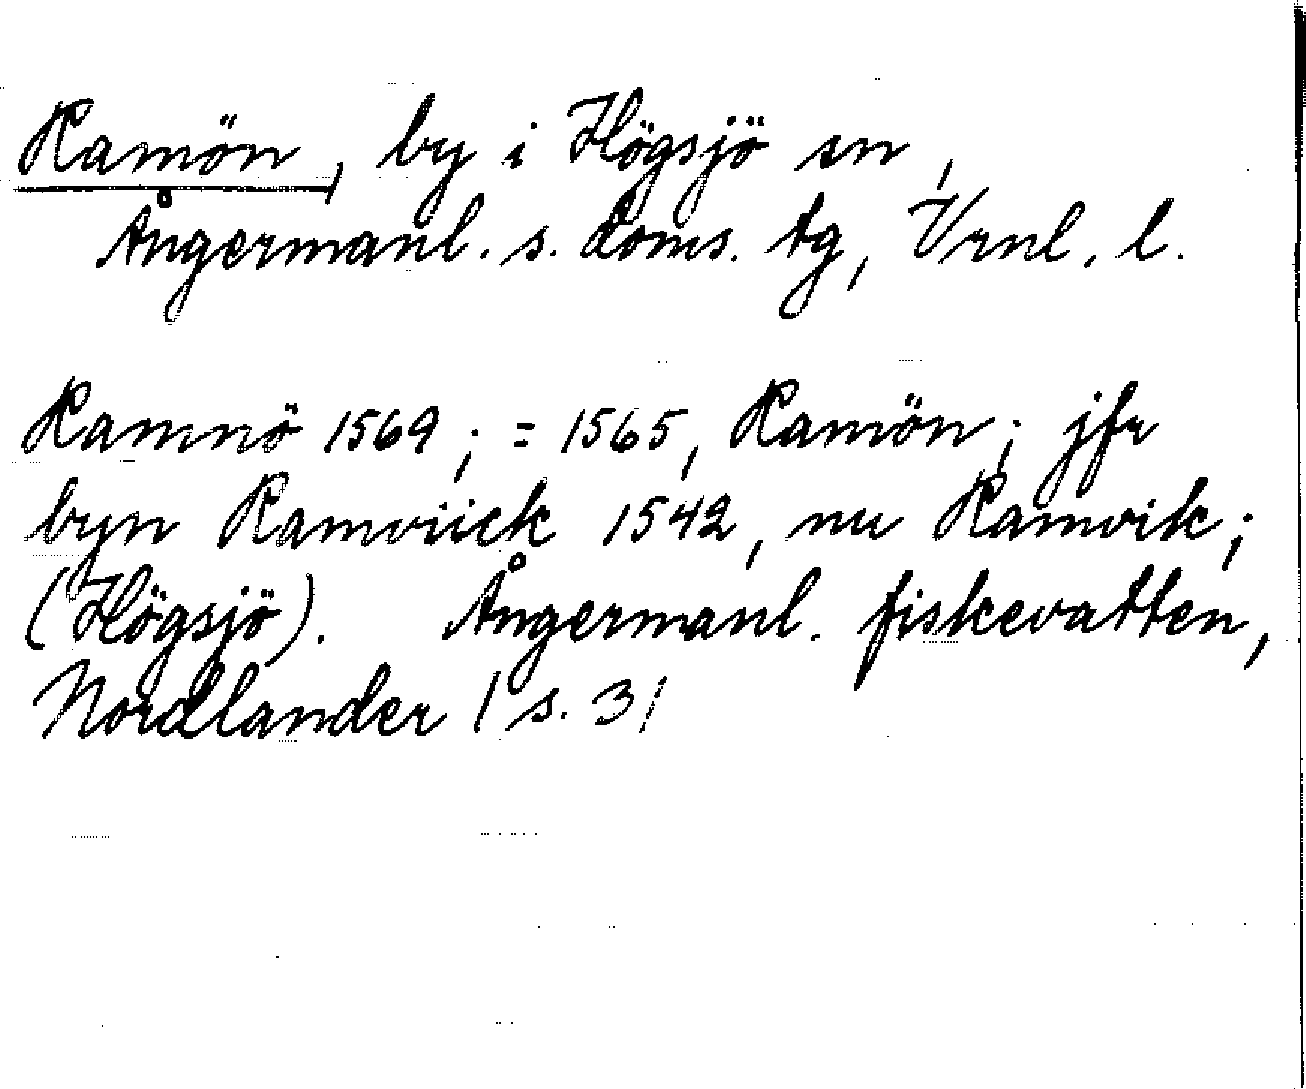 Ramön, by i Högsjö sn,
Ångermanl. s. doms. tg, Vrnl. l.
Ramnö 1569; = 1565, Ramön; jfr
byn Ramviick 1542, nu Ramvik;
(Högsjö). Ångermanl. fiskevatten,
Nordlander / s. 3/